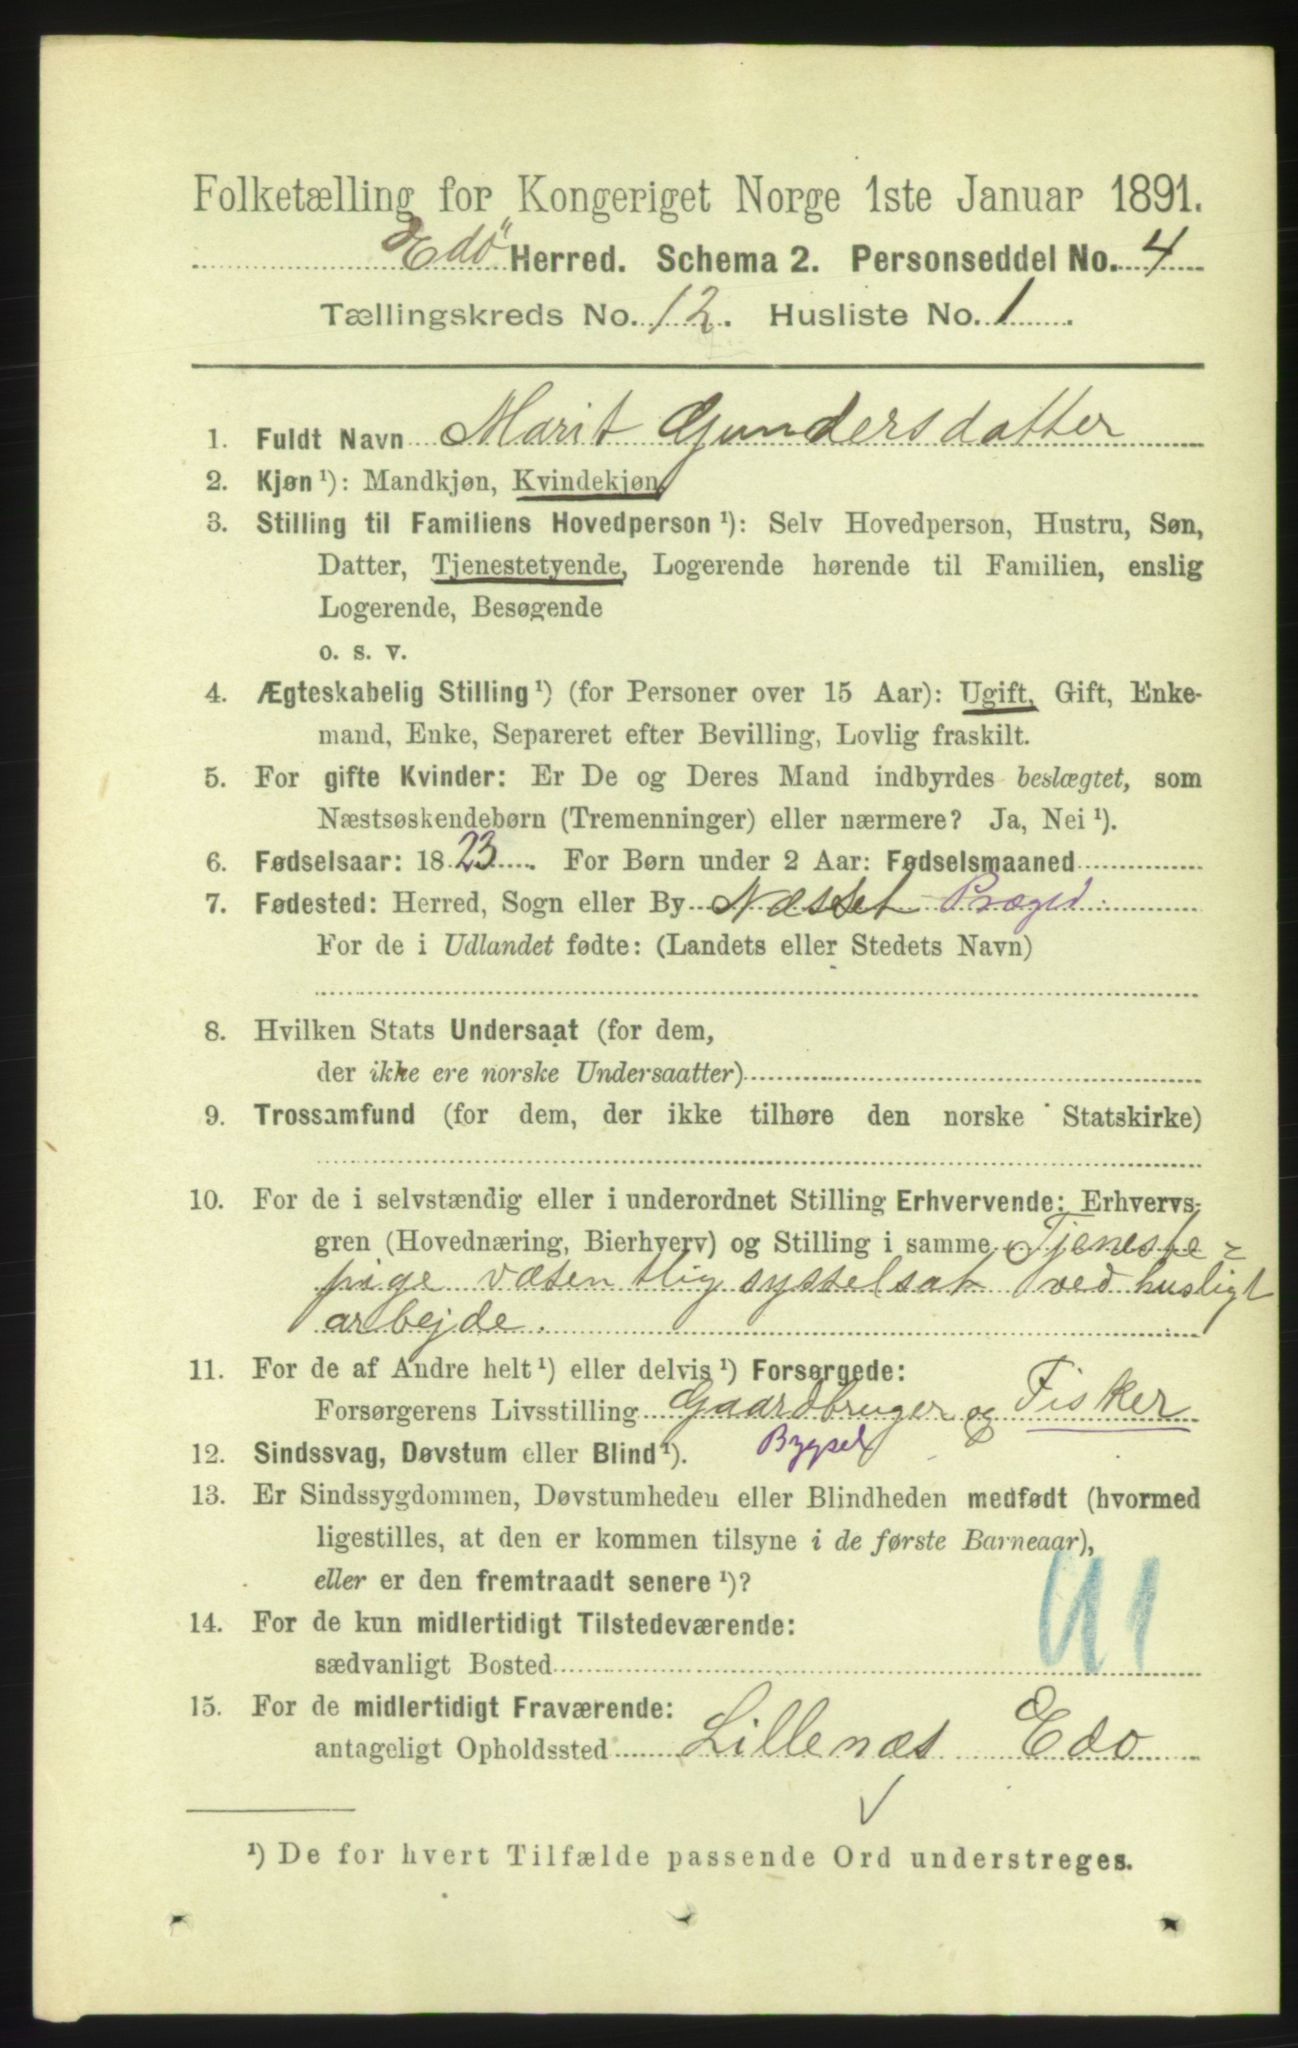 Folketælling for Kongeriget Norge 1ste Januar 1891.
Edö Herred. Schema 2. Personseddel No. 4
Tællingskreds No. 12. Husliste No. 1.
1. Fuldt Navn Marit Gundersdatter
2. Kjøn ¹): Mandkjøn, Kvindekjøn.
3. Stilling til Familiens Hovedperson ¹): Selv Hovedperson, Hustru, Søn,
Datter, Tjenestetyende, Logerende hørende til Familien, enslig
Logerende, Besøgende
o. s. v.
4. Ægteskabelig Stilling ¹) (for Personer over 15 Aar): Ugift, Gift, Enke-
mand, Enke, Separeret efter Bevilling, Lovlig fraskilt.
5. For gifte Kvinder: Er De og Deres Mand indbyrdes beslægtet, som
Næstsøskendebørn (Tremenninger) eller nærmere? Ja, Nei ¹).
6. Fødselsaar: 1823. For Børn under 2 Aar: Fødselsmaaned
7. Fødested: Herred, Sogn eller By Næsset Prægjd.
For de i Udlandet fødte: (Landets eller Stedets Navn)
8. Hvilken Stats Undersaat (for dem,
der ikke ere norske Undersaatter)
9. Trossamfund (for dem, der ikke tilhøre den norske Statskirke)
10. For de i selvstændig eller i underordnet Stilling Erhvervende: Erhvervs-
gren (Hovednæring, Bierhverv) og Stilling i samme Tjeneste=
pige væsentlig sysselsat ved husligt
arbejde.
11. For de af Andre helt ¹) eller delvis ¹) Forsørgede:
Forsørgerens Livsstilling Gaardbruger og Fisker
Bygsel
12. Sindssvag, Døvstum eller Blind ¹).
13. Er Sindssygdommen, Døvstumheden eller Blindheden medfødt (hvormed
ligestilles, at den er kommen tilsyne i de første Barneaar),
eller er den fremtraadt senere ¹)?
14. For de kun midlertidigt Tilstedeværende:
sædvanligt Bosted
15. For de midlertidigt Fraværende:
antageligt Opholdssted Lillenæs Edö
¹) De for hvert Tilfælde passende Ord understreges.